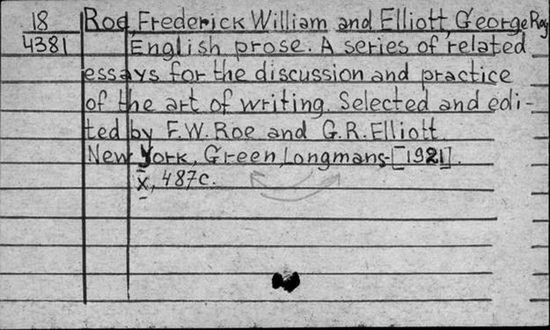 18
4381
Roe, Frederick William and Elliott, George Roy
English prose. A series of related
essays for the discussion and practice
of the art of writing. Selected and edi-
ted by F.W. Roe and G.R. Elliott.
New York, Green, Longmans. [1921].
x, 487c.